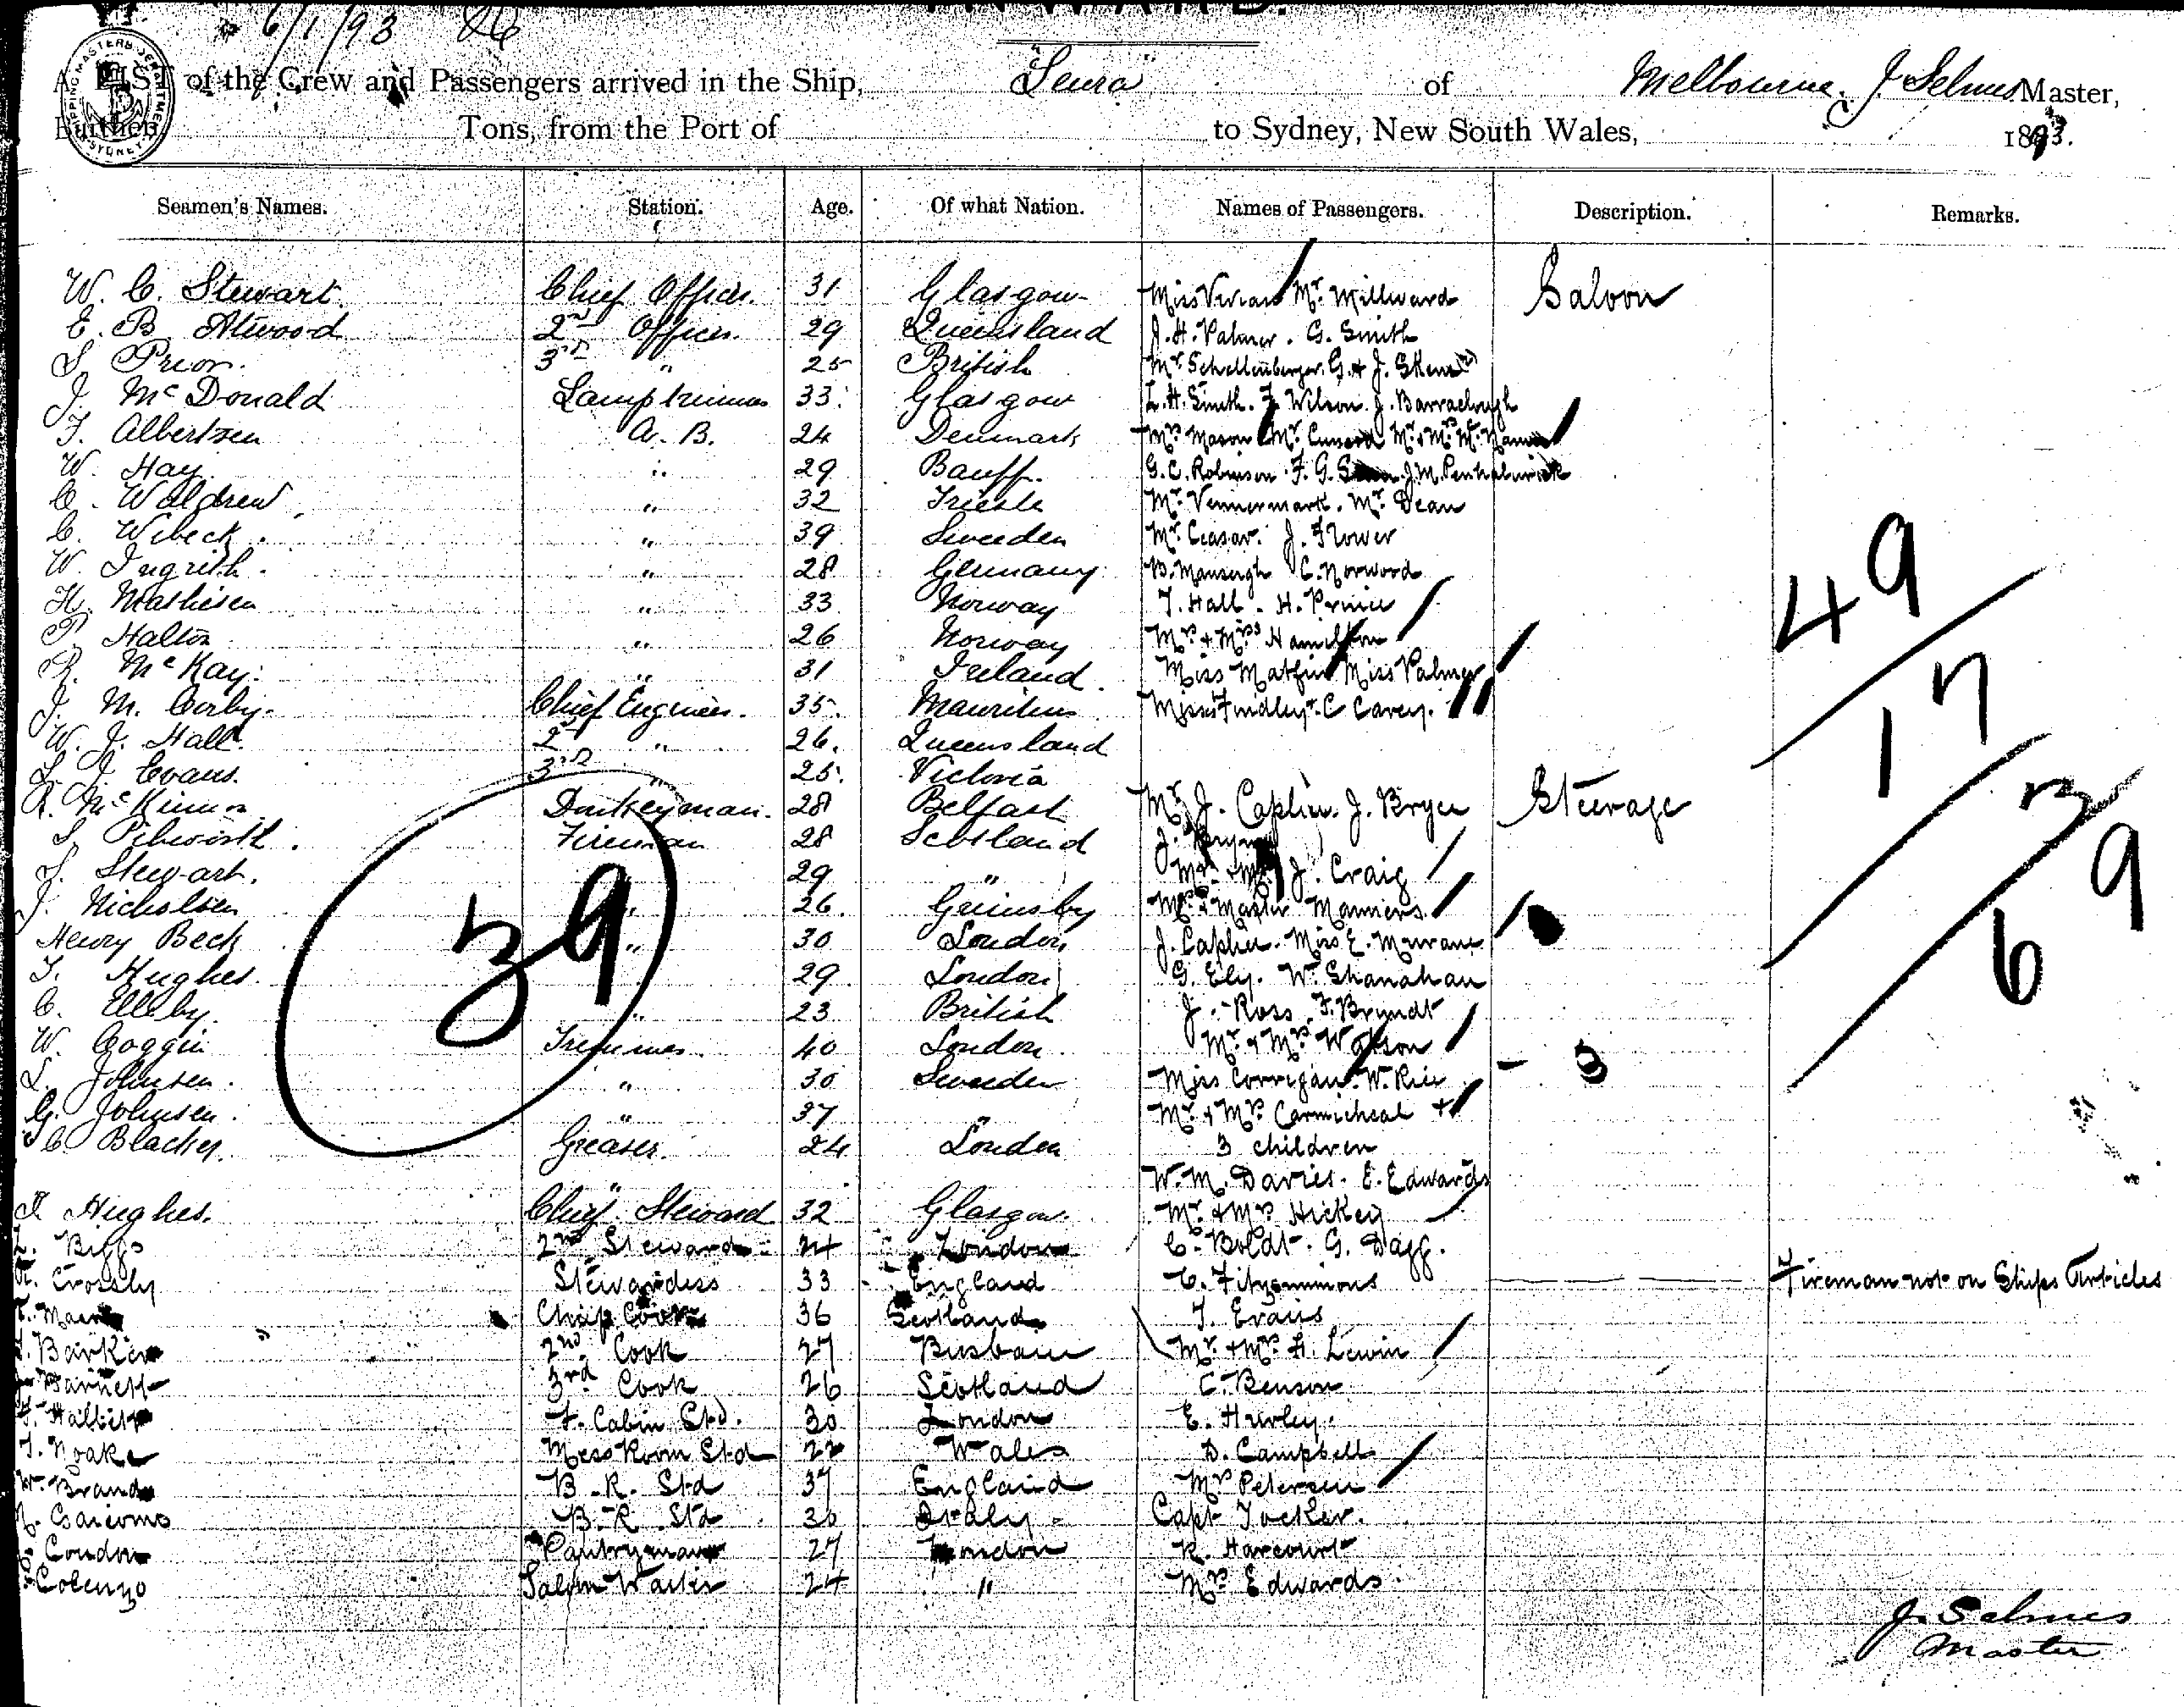 INWARD.
6/1/93
SHIPPING MASTERS DEPARTMENT SYDNEY
A LIST of the Crew and Passengers arrived in the Ship, "Leura" of Melbourne. J. Selmes Master,
Burthen Tons, from the Port of to Sydney, New South Wales, 1893.
Seamen's Names. Station. Age. Of what Nation. Names of Passengers. Description. Remarks.
W. C. Stewart. Chief Officer. 31 Glasgow Miss Vivian Mr. Millward Saloon
E. B. Atwood 2nd Officer. 29 Queensland J. H. Palmer. G. Smith
S. Prior. 3rd " 25 British Mr Schellenberger. G. & J. Skene
J. McDonald Lamptrimmer 33. Glasgow L. H. Smith. F. Wilson. J. Barraclough
J. Albertsen A. B. 24 Denmark Mrs Mason Mr. Mr & Mrs
W. Hay " 29 Banff. G. C. Robinson. F. G.
C. Waldrew " 32 Trieste Mr. Vennermark. Mr. Dean
C. Wibeck. " 39 Sweden Mr. Ceasar. J. Flower
W. Ingrith. " 28 Germany B. Mansergh C. Norwood
H. Mathisen " 33 Norway T. Hall. H. Prince
P. Halton " 26 Norway Mrs & Miss Hamilton
R. McKay. " 31 Ireland. Miss Miss Palmer
J. M. Corby. Chief Engineer. 35. Mauritius Misses Findley. C Carey.
W. J. Hall. 2nd " 26. Queensland
L. J. Evans. 3rd " 25. Victoria
R. McKinnon Donkeyman. 28 Belfast Mr J. Caplin. J. Bryce Steerage
S. Pilworth. Fireman 28 Scotland J.
S. Stewart. " 29 " Mr & Mrs J. Craig
J. Nicholsen " 26. Grimsby Mrs & Master Manners.
Henry Beck " 30 London J. Caplin. Miss E.
T. Hughes. " 29 London G. Ely. W. Shanahan
C. Elleby. " 23 British J. Ross. F. Bryndt
W. Coggin Trimmer. 40 London. Mr & Mrs Watson
L. Johnsen. " 30 Sweden Miss Corrigan. W. Rice
G. Johnsen. " 37 " Mr & Mrs Carmicheal +
C. Blacker. Greaser. 24 London 3 children
W. M. Davies. E. Edwards
J. Hughes. Chief Steward 32 Glasgow. Mr & Mrs Hickey
Biggs 2nd Steward 24 London C. Boldt. G. Dagg.
Crossly Stewardess 33 England C. Fitzsimmons Fireman not on Ships Articles
Chief Cook 36 Scotland T. Evans
Barker 2nd Cook 27 Brisbane Mr. & Mrs H. Lewin
Barnett 3rd Cook 26 Scotland C. Benson
F. Cabin Std. 30 London E. Hurley.
T. Noake Mess Room Std 22 Wales D. Campbell
W. Brand B. R. Std 37 England Mrs Petersen
Giacomo B. R. Std 30 Italy Capt Tocker.
Condon Pantryman 27 London R. Harcourt
Colenzo Saloon Waiter 24 " Mrs Edwards.
39
49
17
3
9
6
3
J. Selmes
Master